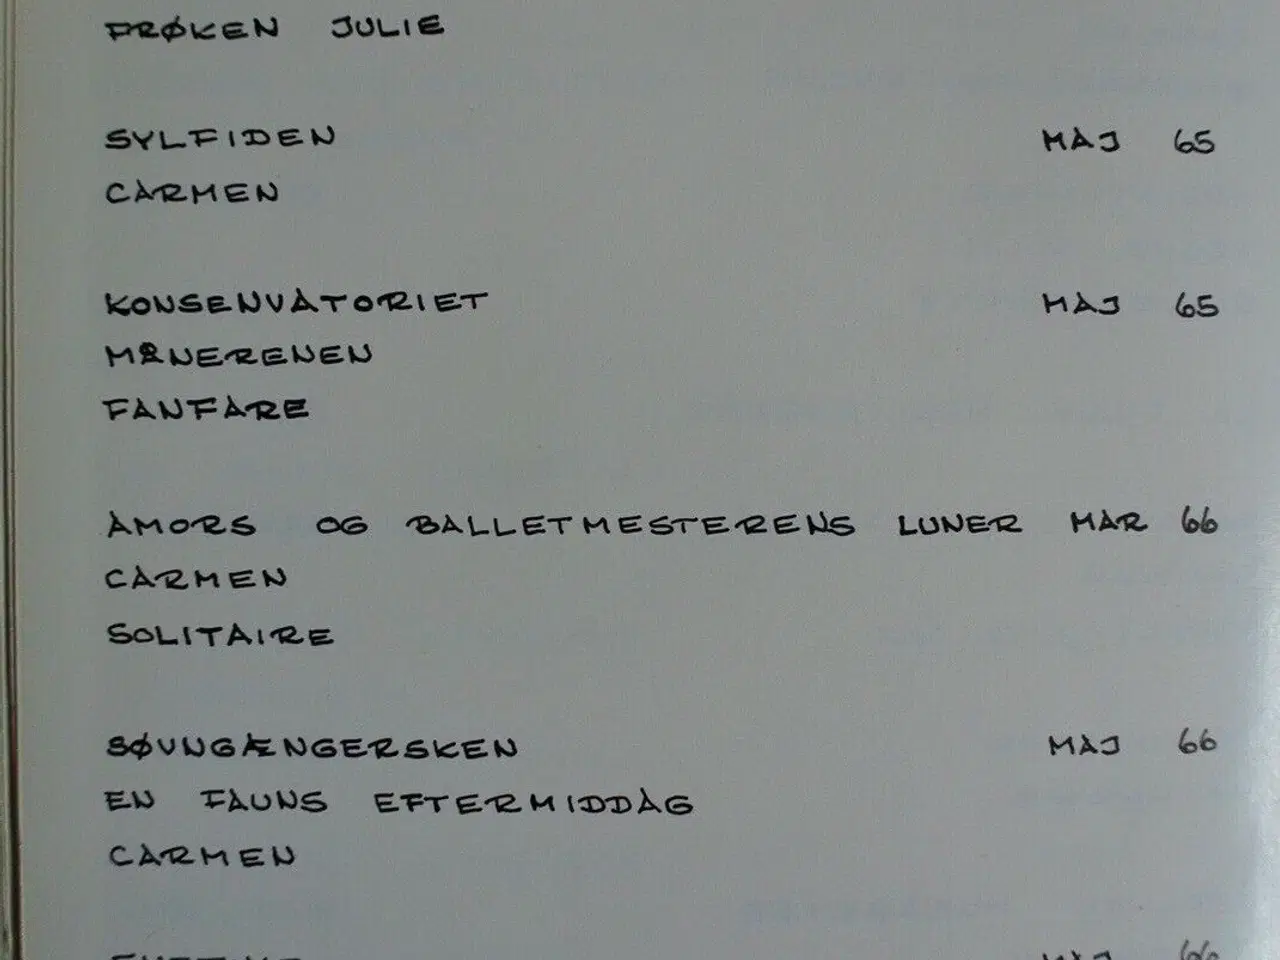 FRØKEN JULIE
SYLFIDEN MAJ 65
CARMEN
KONSENVATORIET MAJ 65
MÅNERENEN
FANFARE
AMORS OG BALLETMESTERENS LUNER MAR 66
CARMEN
SOLITAIRE
SØVNGÆNGERSKEN MAJ 66
EN FAUNS EFTERMIDDAG
CARMEN
MAJ 66